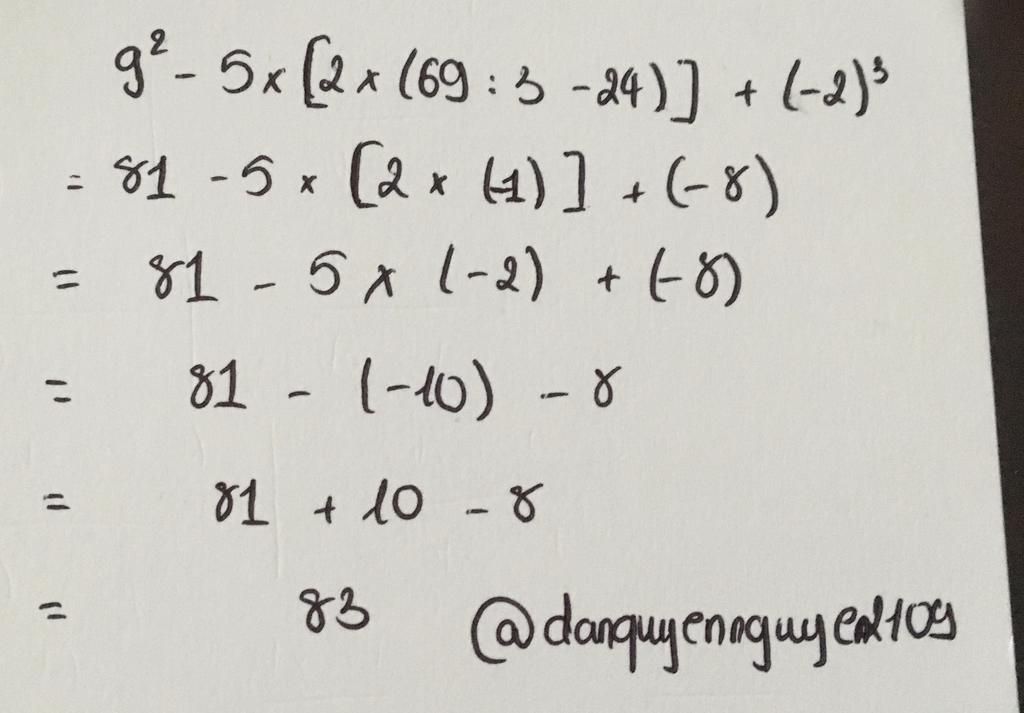 9² - 5 x [2 x (69 : 3 - 24)] + (-2)³
= 81 - 5 x [2 x (-1)] + (-8)
= 81 - 5 x (-2) + (-8)
= 81 - (-10) - 8
= 81 + 10 - 8
= 83 @danquyennguyen2109